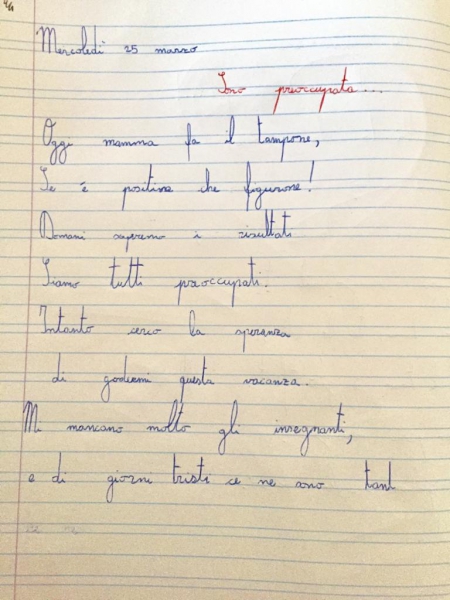 Mercoledì 25 marzo
Sono preoccupata...
Oggi mamma fa il tampone,
Se è positiva che figurone!
Domani sapremo i risultati
Siamo tutti preoccupati.
Intanto cerco la speranza
di godermi questa vacanza.
Mi mancano molto gli insegnanti,
e di giorni tristi ce ne sono tanti